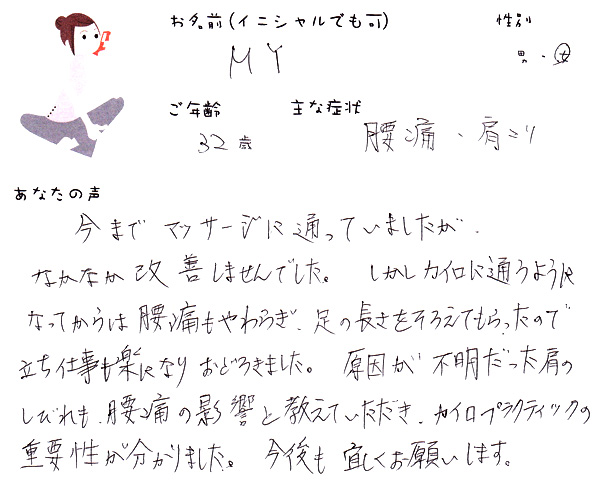 お名前(イニシャルでも可) 性別
MY 男・女
ご年齢 主な症状
32歳 腰痛、肩こり
あなたの声
今まで マッサージに通っていましたが、
なかなか改善しませんでした。 しかしカイロに通うように
なってからは腰痛もやわらぎ、足の長さをそろえてもらったので
立ち仕事も楽になり おどろきました。 原因が不明だった肩の
しびれも、腰痛の影響と教えていただき、カイロプラクティックの
重要性が分かりました。 今後も宜しくお願いします。